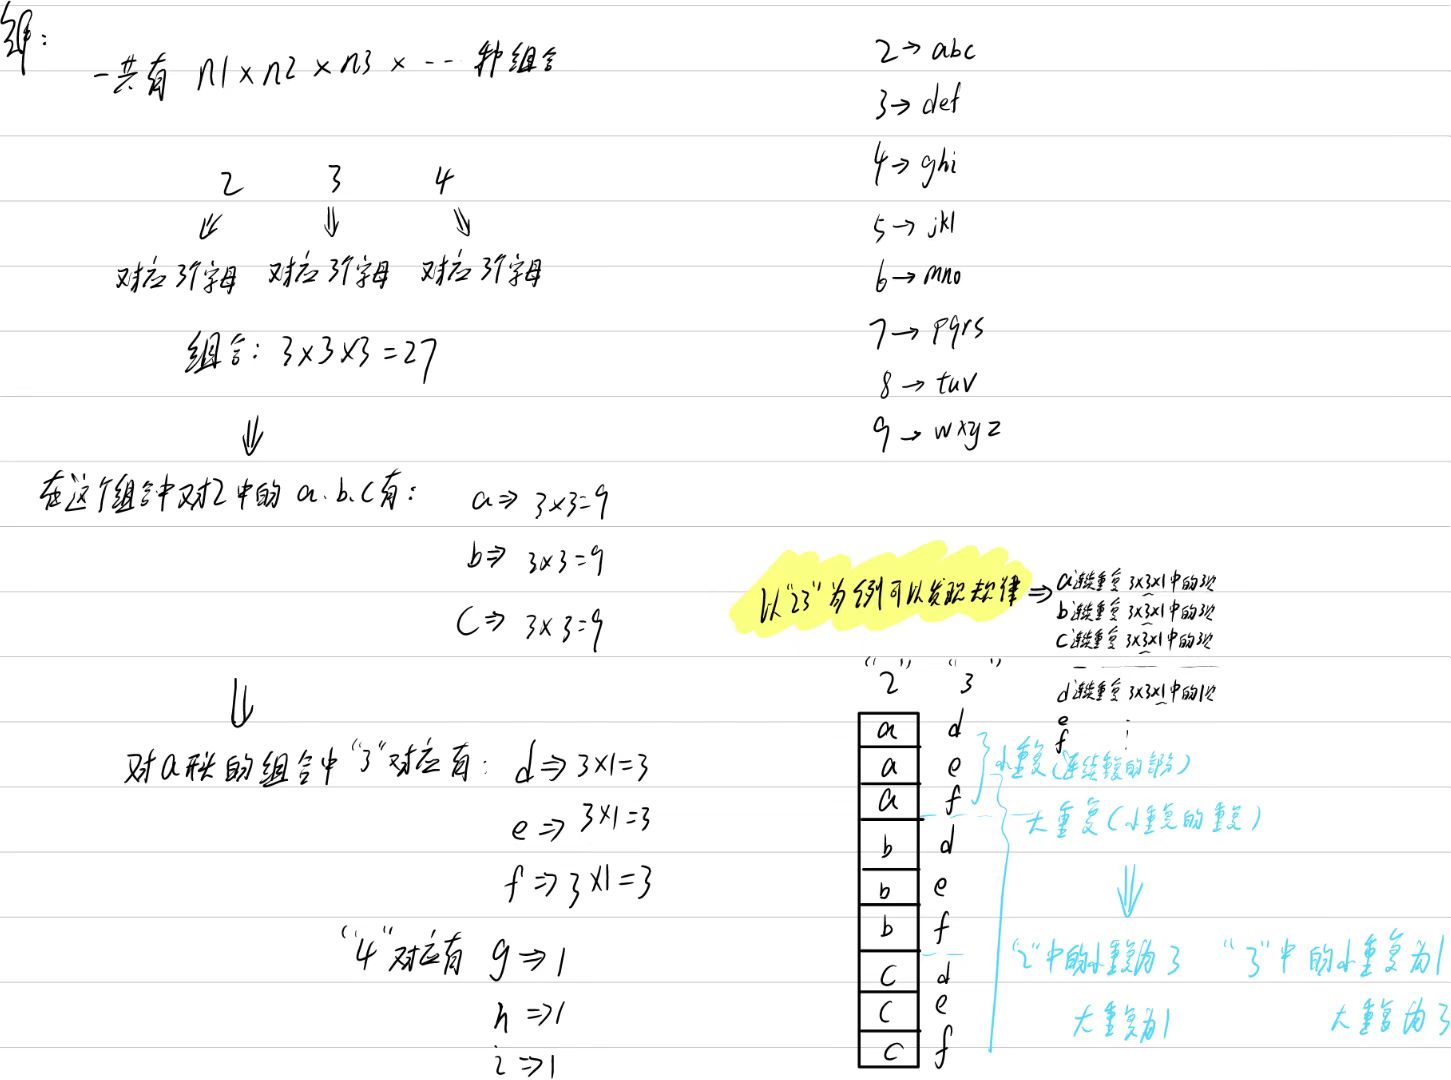 一共有 n1×n2×n3×--- 种组合
2 3 4
对应3个字母 对应3个字母 对应3个字母
组合：3×3×3=27
在这个组合中对2中的 a.b.c有：
a⇒ 3×3=9
b⇒ 3×3=9
c⇒ 3×3=9
对a 的组合中“3”对应有：
d⇒3×1=3
e⇒3×1=3
f⇒3×1=3
“4”对应有
g⇒1
h⇒1
i⇒1
2→abc
3→def
4→ghi
5→jkl
6→mno
7→pqrs
8→tuv
9→wxyz
以“23”为例可以发现规律⇒
a连续重复 3×3×1中的3次
b连续重复 3×3×1中的3次
c连续重复 3×3×1中的3次
d连续重复 3×3×1中的1次
e
f
“2” “3”
a d
a e
a f
b d
b e
b f
c d
c e
c f
小重复(连续重复的部分)
大重复(小重复的重复)
“2”中的小重复为3 “3”中的小重复为1
大重复为1 大重复为3